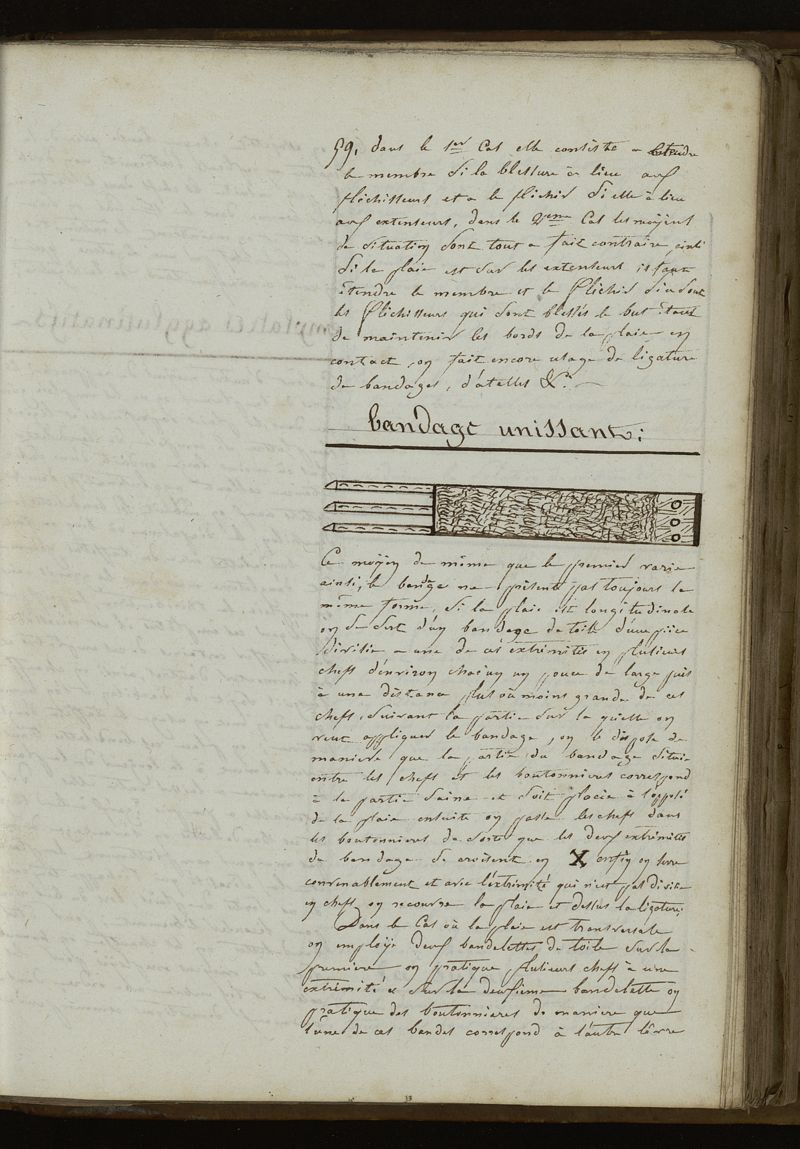 59, dans le 1er Cas elle consiste a étendre
le membre Si la blessure à lieu aux
fléchisseurs et a le fléchir Si elle à lieu
aux extenseurs, dans le 2eme Cas les moÿens
de Situation Sont tout a fait contraire, ainsi
Si la plaie est Sur les extenseurs il faut
étendre le membre et le fléchir Si ce Sont
les fléchisseurs qui Sont blessés le but étant
de maintenir les bords de la plaie en
contact, on fait encore usage de ligature
de bandages, d'atelles &a.
bandage unissant;
Ce moÿen de même que le premier varie
ainsi, le bandage ne présente pas toujours la
même forme, Si la plaie est longitudinale
on Se Sert d'un bandage de toile d'une pièce
divisée a une de ces extrémités en plusieurs
chefs d'environ chacun un pouce de large puis
à une distance plus ou moins grande de ces
chefs, Suivant la partie Sur la quelle on
veut appliquer le bandage, on le dispose de
maniere que la partie du bandage Située
entre les chefs et les boutonnieres correspond
à la partie Saine et Soit placée à l'opposé
de la plaie ensuite on passe les chefs dans
les boutonnieres de Sorte que les deux extrémités
du bandage Se croisent en X, enfin on Serre
convenablement et avec l'extrémité qui n'est pas divisée
en chefs on recouvre la plaie et dessus la ligature,
Dans le Cas où la plaie est transversale
on emploÿe deux bandelettes de toile Sur la
premiere on pratique plusieurs chefs à une
extrémité et Sur la deuxieme bandelette on
pratique des boutonnieres de maniere que
l'une de ces bandes correspond à l'autre lèvre